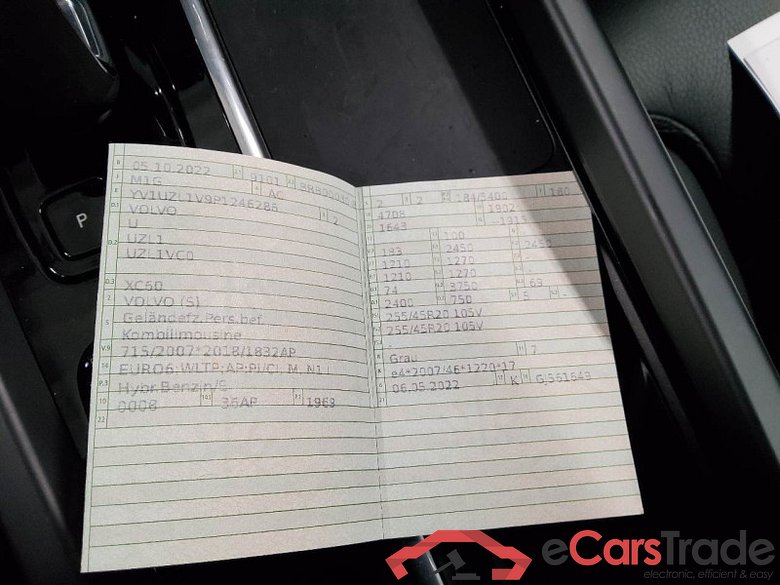 B 05.10.2022 9101
J M1G 4 AC
E YV1UZL1V9P1246288
D.1 VOLVO 2
U
D.2 UZL1
UZL1VC0
D.3 XC60
2 VOLVO (S)
5 Geländefz.Pers.bef.
Kombilimousine
V.9 715/2007*2018/1832AP
14 EURO6;WLTP;AP;PI/CI; M, N1 I
P.3 Hybr.Benzin/E
10 0008 36AP 1969
22
2 2 184/5400 180
4708 1902
1643
100
193 2450 2450
1210 1270 -
1210 1270 -
74 3750 69
2400 750 5 -
255/45R20 105V
255/45R20 105V
Grau 7
K e4*2007/46*1220*17
6 06.05.2022 K
21
P
eCarsTrade
electronic, efficient & easy